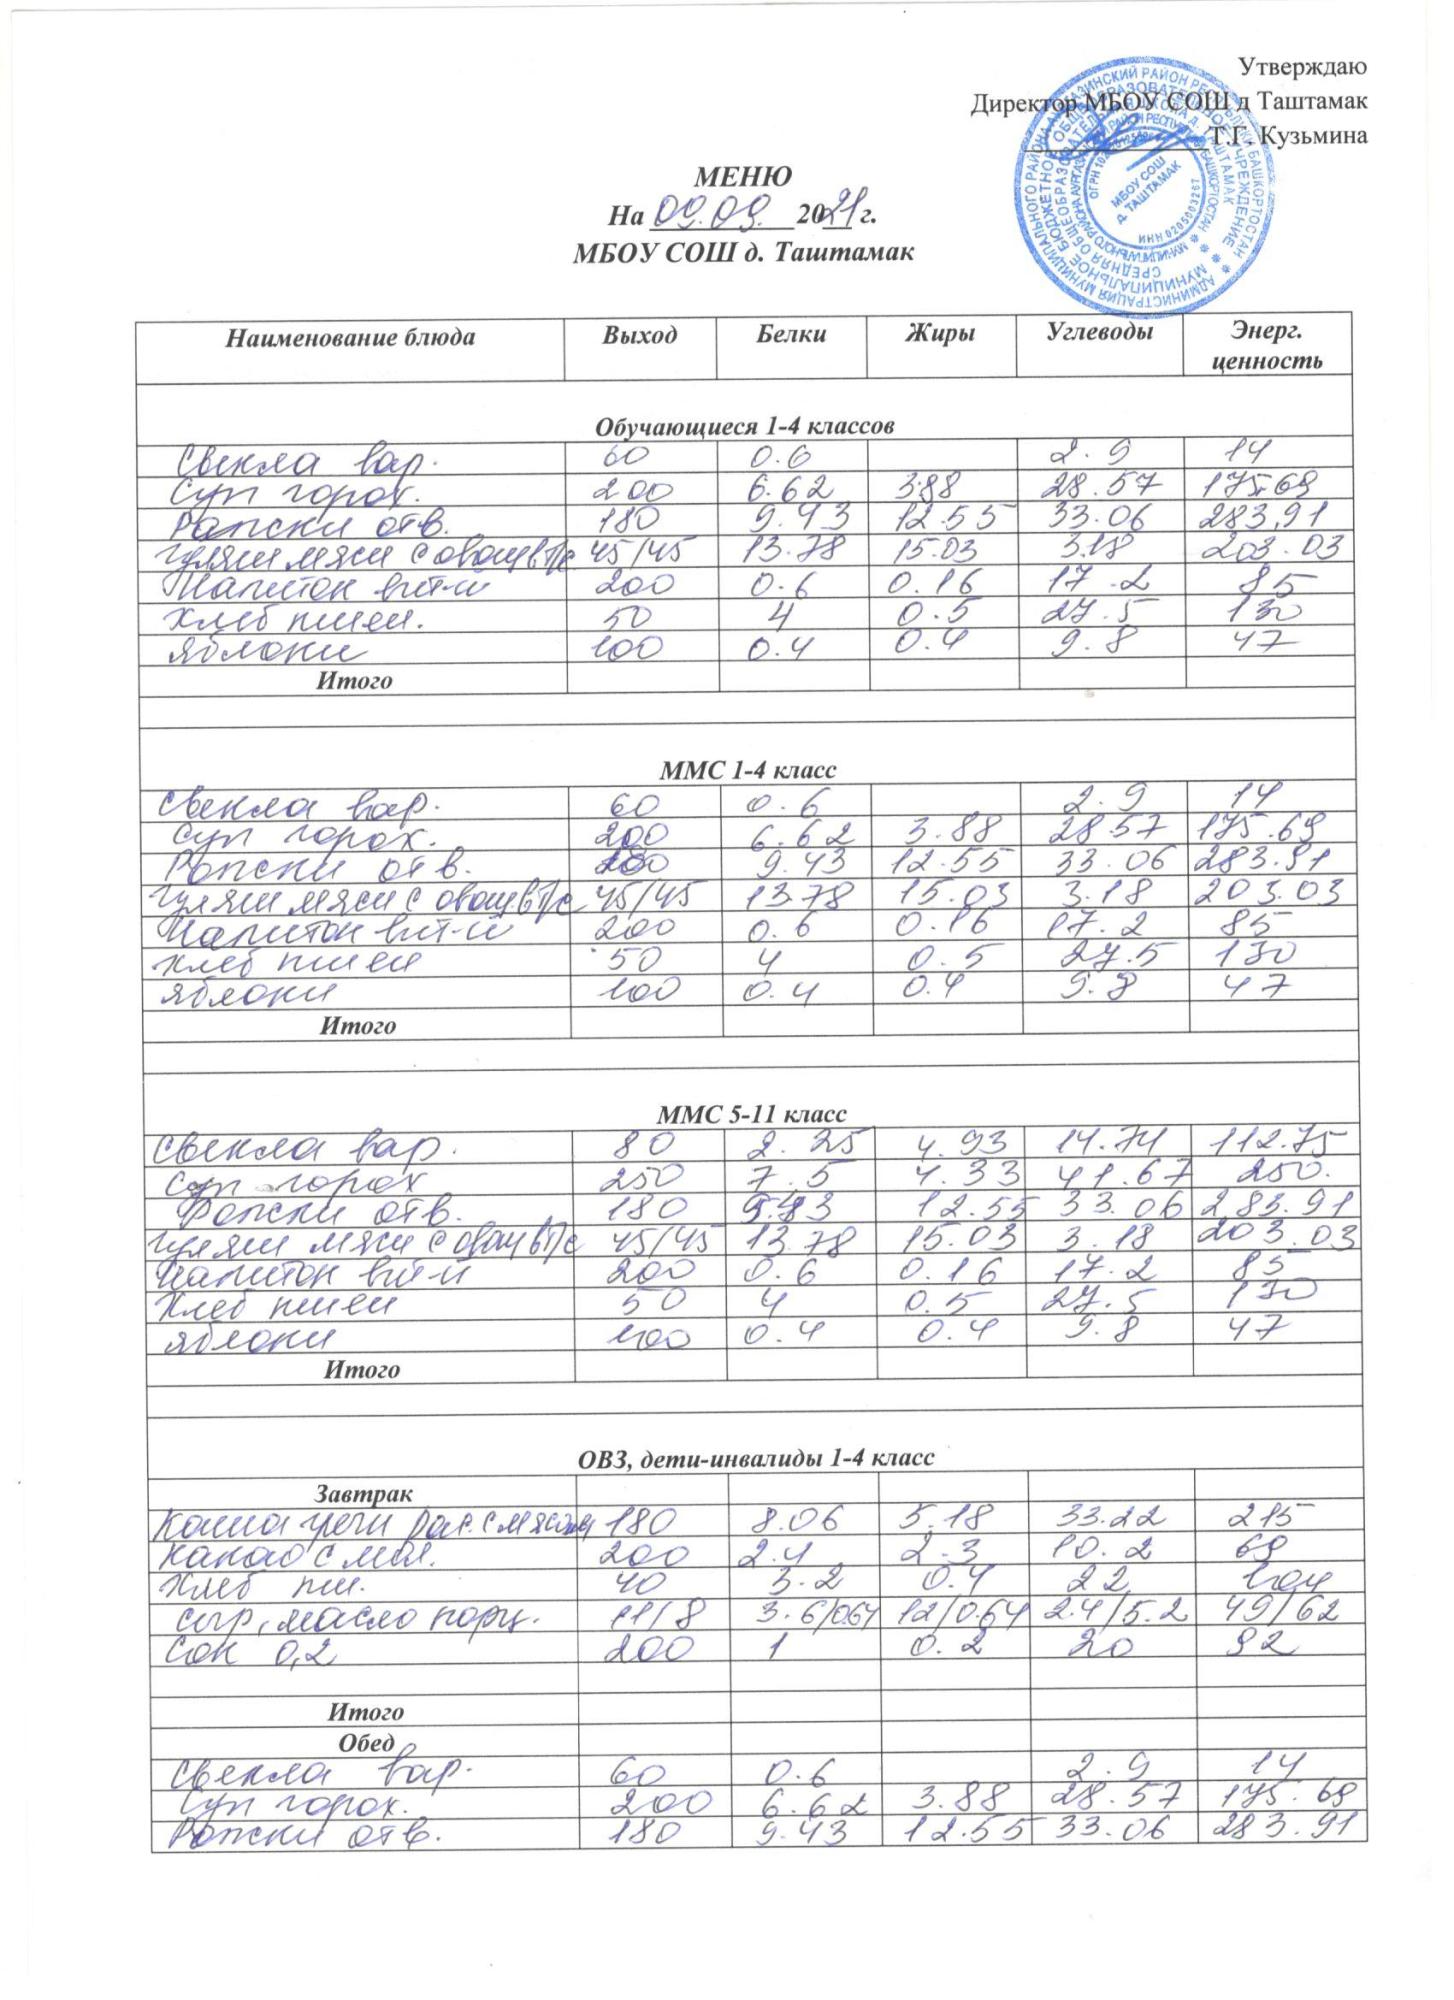 Утверждаю
Директор МБОУ СОШ д Таштамак
Т.Г. Кузьмина
МБОУ СОШ
д. ТАШТАМАК
ИНН 0205003267
МЕНЮ
На 09.09. 2021 г.
МБОУ СОШ д. Таштамак
Наименование блюда Выход Белки Жиры Углеводы Энерг. ценность
Обучающиеся 1-4 классов
Свекла вар. 60 0.6 2.9 14
Суп горох. 200 6.62 3.88 28.57 175.69
Рапски отв. 180 9.43 12.55 33.06 283,91
Гуляш мясн с овощ в т/с 45/45 13.78 15.03 3.18 203.03
Напиток вит-й 200 0.6 0.16 17.2 85
Хлеб пшен. 50 4 0.5 27.5 130
яблоки 100 0.4 0.4 9.8 47
Итого
ММС 1-4 класс
Свекла вар. 60 0.6 2.9 14
Суп горох. 200 6.62 3.88 28.57 175.69
Рапски отв. 180 9.43 12.55 33.06 283.91
Гуляш мясн с овощ в т/с 45/45 13.78 15.03 3.18 203.03
Напиток вит-й 200 0.6 0.16 17.2 85
Хлеб пшен 50 4 0.5 27.5 130
яблоки 100 0.4 0.4 9.8 47
Итого
ММС 5-11 класс
Свекла вар. 80 2.25 4.93 14.74 112.75
Суп горох 250 7.5 4.33 41.67 250.
Рапски отв. 180 9.43 12.55 33.06 283.91
Гуляш мясн с овощ в т/с 45/45 13.78 15.03 3.18 203.03
Напиток вит-й 200 0.6 0.16 17.2 85
Хлеб пшен 50 4 0.5 27.5 130
яблоки 100 0.4 0.4 9.8 47
Итого
ОВЗ, дети-инвалиды 1-4 класс
Завтрак
Каша греч рас. с маслом 180 8.06 5.18 33.22 215
Какао с мол. 200 2.4 2.3 10.2 69
Хлеб пш. 40 3.2 0.4 22 104
Сыр, масло порц. 11/8 3.6/0.64 12/0.64 2.4/5.2 49/62
Сок 0,2 200 1 0.2 20 92
Итого
Обед
Свекла вар. 60 0.6 2.9 14
Суп горох. 200 6.62 3.88 28.57 175.69
Рапски отв. 180 9.43 12.55 33.06 283.91